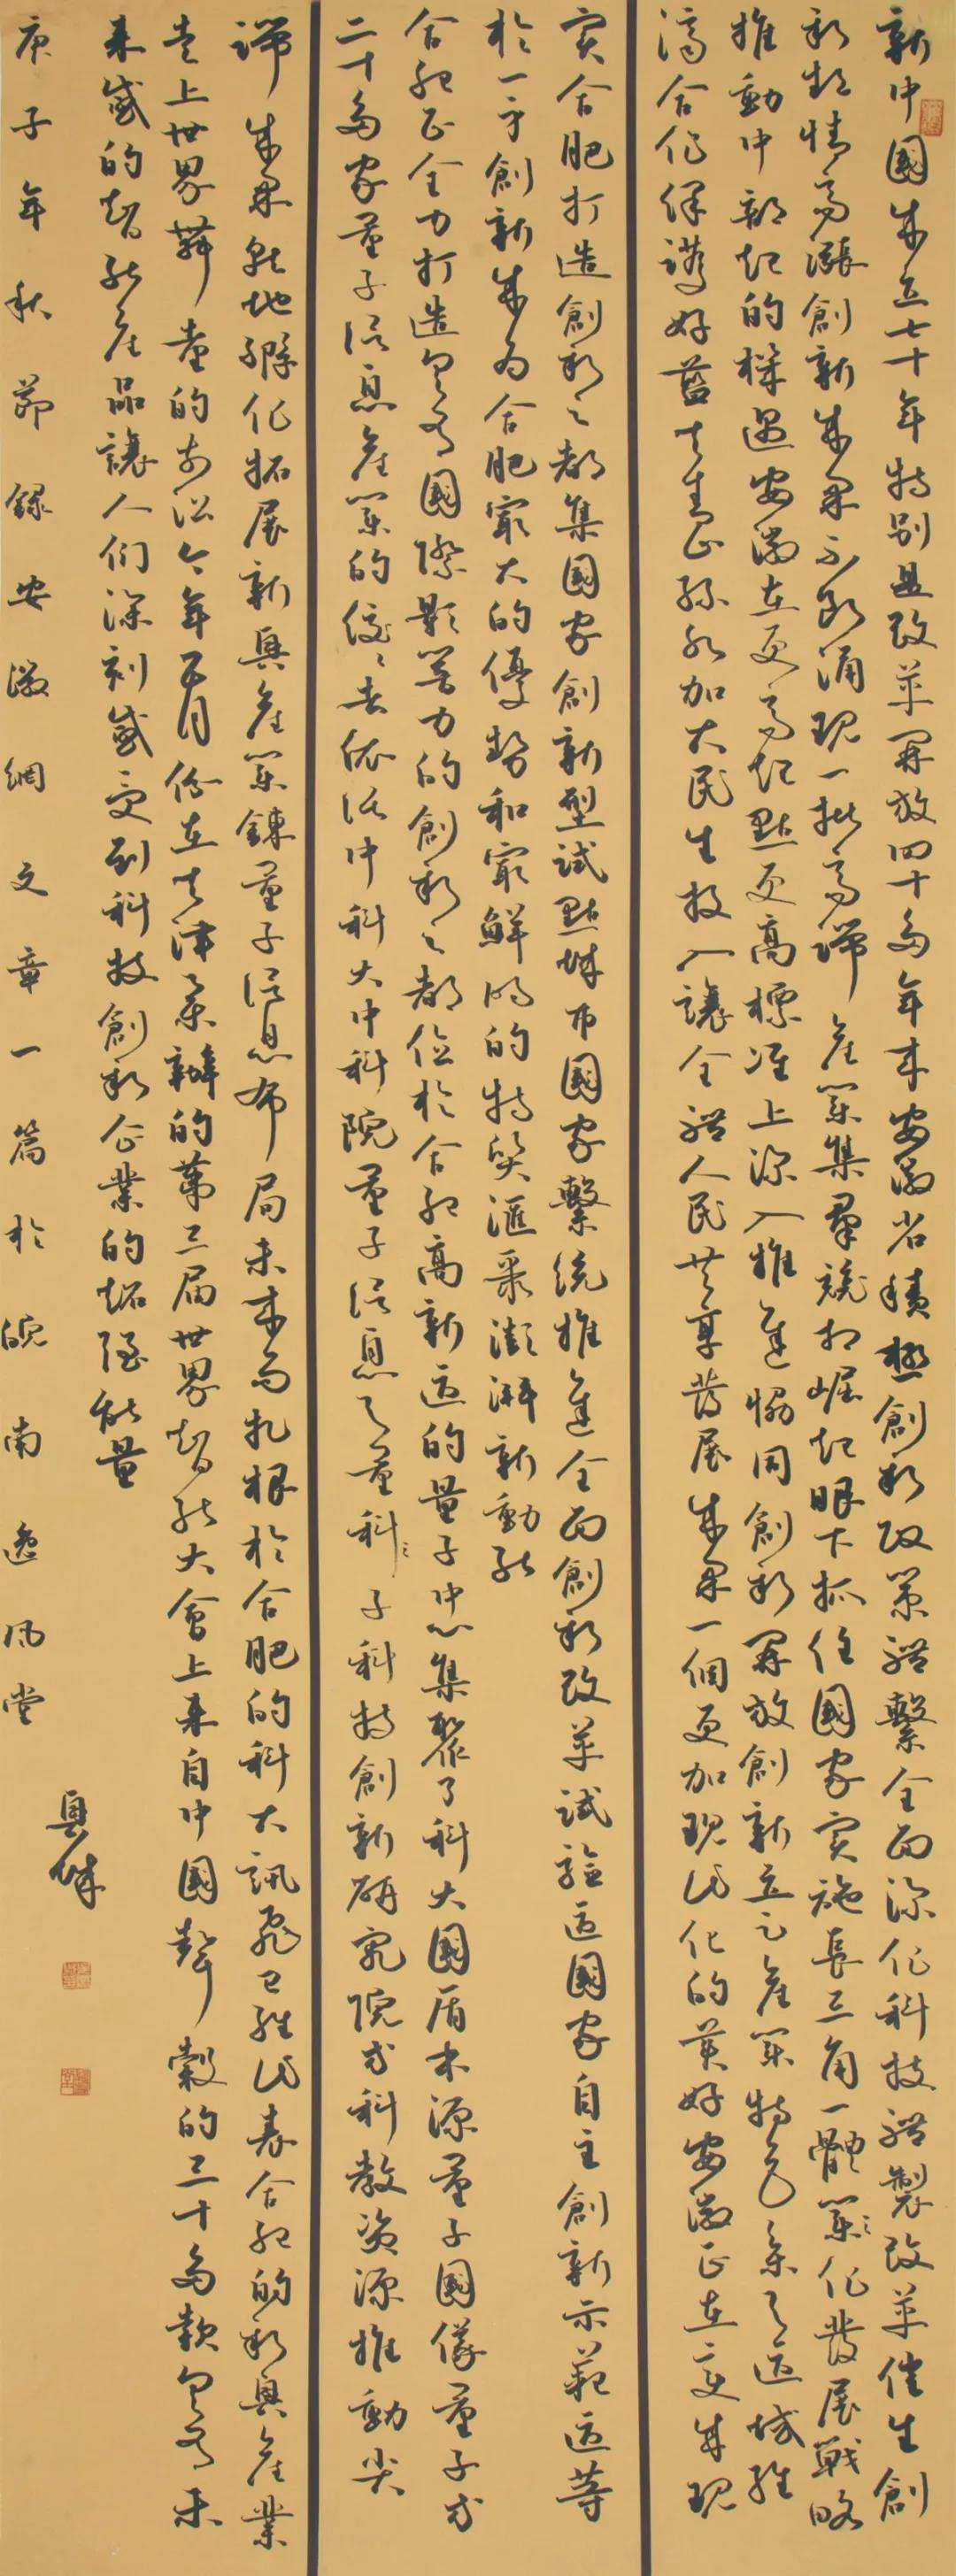 新中國成立七十年特別是改革開放四十多年來安徽省積極創新政策體繫全面深化科技體製改革催生創
新熱情高漲創新成果不斷涌現一批高端產業集羣競相崛起眼下抓住國家實施長三角一體業化發展戰略
推動中部崛起的機遇安徽在更高起點更高標准上深入推進協同創新開放創新立足產業特色參與區域經
濟合作保護好藍天青山綠水加大民生投入讓全體人民共享發展成果一個更加現代化的美好安徽正在變成現
實合肥打造創新之都集國家創新型試點城市國家繫統推進全面創新改革試驗區國家自主創新示範區等
於一身創新成為合肥最大的優勢和最鮮明的特質滙聚澎湃新動能
合肥正全力打造具有國際影響力的創新之都位於合肥高新區的量子中心集聚了科大國盾本源量子國儀量子等
二十多家量子信息產業的佼佼者依託中科大中科院量子信息與量科子科技創新研究院等科教資源推動尖
端成果就地孵化拓展新興產業鏈量子信息布局未來而扎根於合肥的科大訊飛已經代表合肥的新興產業
走上世界舞臺的前沿今年五月份在天津舉辦的第三屆世界智能大會上來自中國聲穀的三十多款具有未
來感的智能產品讓人們深刻感受到科技創新企業的超強能量
庚子年秋節錄安徽網文章一篇於皖南逸風堂